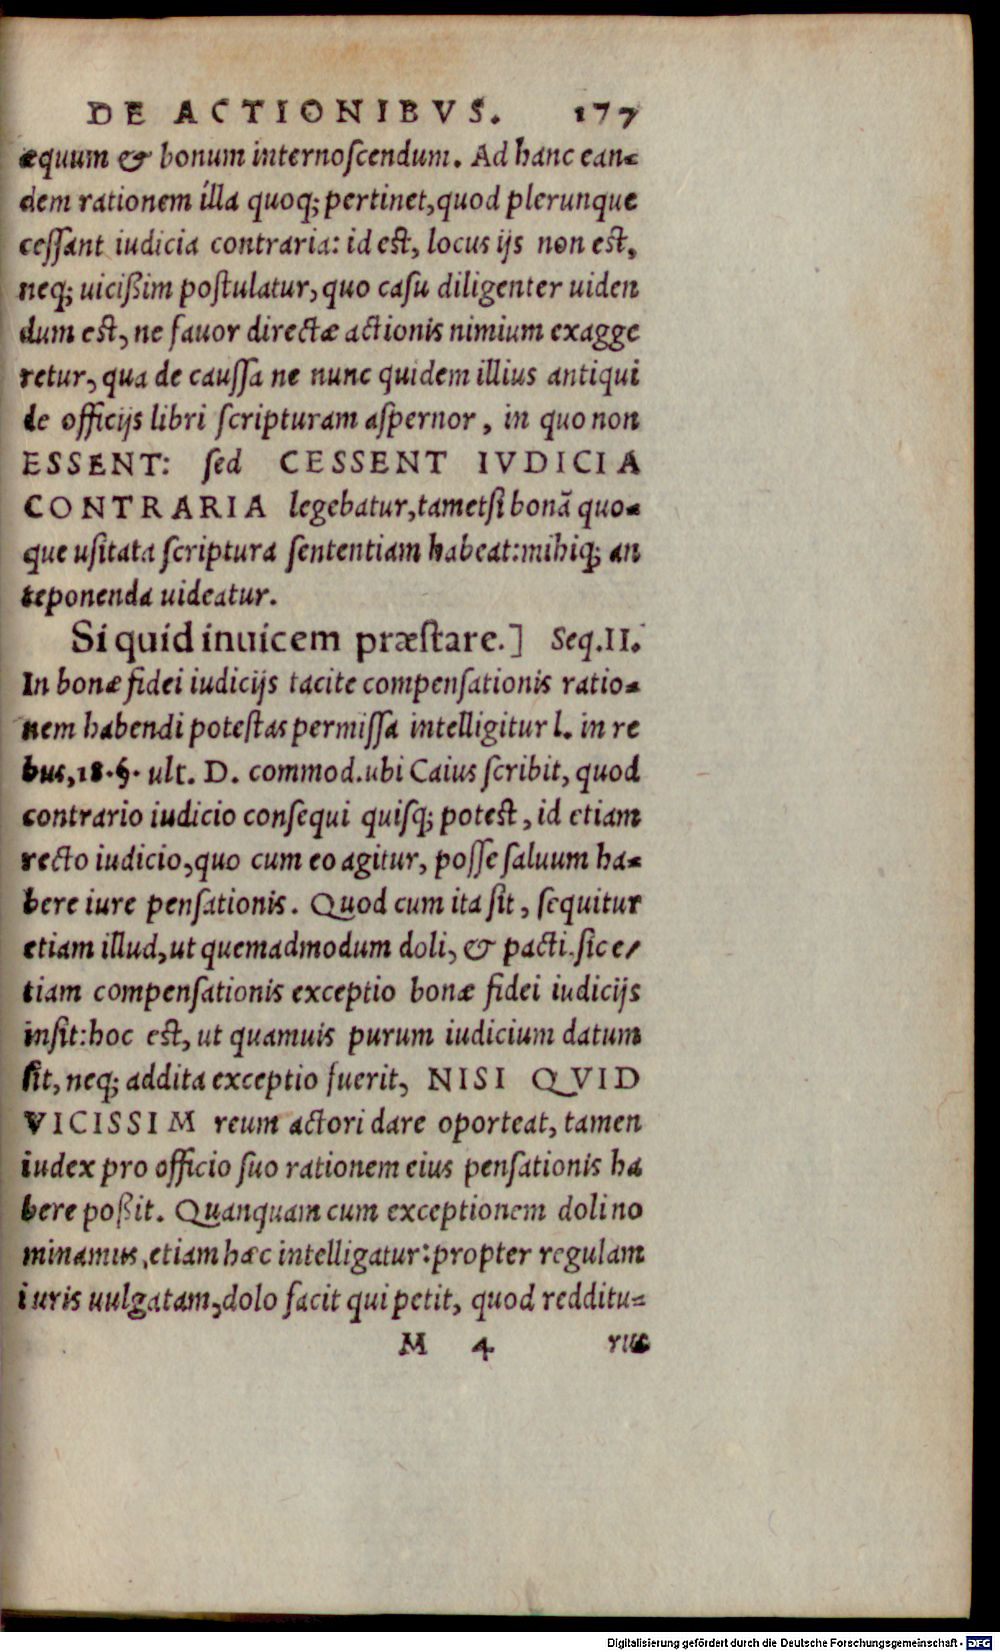 DE ACTIONIBVS. 177
æquum & bonum internoſcendum. Ad hanc ean-
dem rationem illa quoq; pertinet, quod plerunque
ceſſant iudicia contraria: id eſt, locus ijs non eſt,
neq; uicißim poſtulatur, quo caſu diligenter uiden
dum eſt, ne fauor directæ actionis nimium exagge
retur, qua de cauſſa ne nunc quidem illius antiqui
de officijs libri ſcripturam aſpernor, in quo non
ESSENT: ſed CESSENT IVDICIA
CONTRARIA legebatur, tametſi bonã quo-
que uſitata ſcriptura ſententiam habeat: mihiq; an
teponenda uideatur.
Si quid inuicem præſtare.] Seq. II.
In bonæ fidei iudicijs tacite compenſationis ratio-
nem habendi poteſtas permiſſa intelligitur l. in re
bus, 18. §. ult. D. commod. ubi Caius ſcribit, quod
contrario iudicio conſequi quiſq; poteſt, id etiam
recto iudicio, quo cum eo agitur, poſſe ſaluum ha-
bere iure penſationis. Quod cum ita ſit, ſequitur
etiam illud, ut quemadmodum doli, & pacti, ſic e-
tiam compenſationis exceptio bonæ fidei iudicijs
inſit: hoc eſt, ut quamuis purum iudicium datum
ſit, neq; addita exceptio fuerit, NISI QVID
VICISSIM reum actori dare oporteat, tamen
iudex pro officio ſuo rationem eius penſationis ha
bere poßit. Quanquam cum exceptionem doli no
minamus, etiam hæc intelligatur: propter regulam
iuris uulgatam, dolo facit qui petit, quod redditu-
M 4 rus
Digitalisierung gefördert durch die Deutsche Forschungsgemeinschaft - DFG